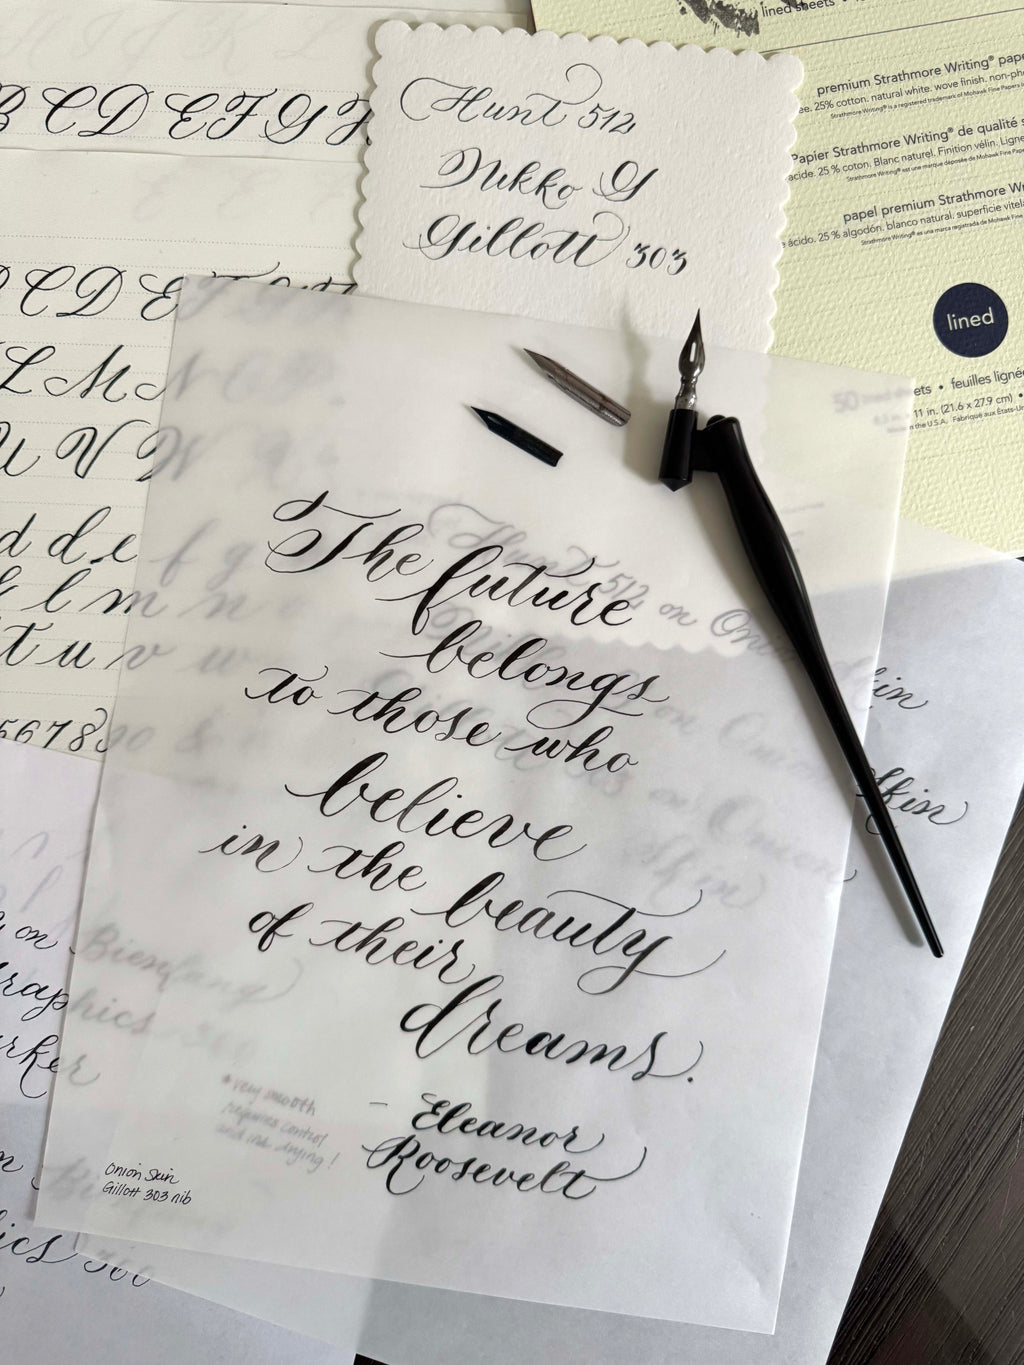 lined sheets
B C D E F G
premium Strathmore Writing® pape
25% cotton. natural white. wove finish. non-ph
Strathmore Writing® is a registered trademark of Mohawk Fine Papers
Hunt 512
Nikko G
Gillott 303
Papier Strathmore Writing® de qualité s
acide. 25 % coton. Blanc naturel. Finition vélin. Ligne
Strathmore Writing® est une marque déposée de Mohawk Fine Pape
papel premium Strathmore Wri
ácido. 25 % algodón. blanco natural. superficie vitela
Strathmore Writing® es una marca registrada de Mohawk Fine
lined
50 lined sheets • feuilles ligné
11 in. (21.6 x 27.9 cm) •
in the U.S.A. Fabriqué aux États-Un
C D E F
L M N
U V W
d d e f g
k l m n
t u v w
5 6 7 8 9 0 &
The future
belongs
to those who
believe
in the beauty
of their
dreams.
- Eleanor
Roosevelt
Hunt 512 on Onion Skin
on Onion Skin
on Onion
Skin
on Bienfang
Graphics 360
Marker
*very smooth
requires control
and ink drying!
Onion Skin
Gillott 303 nib
360